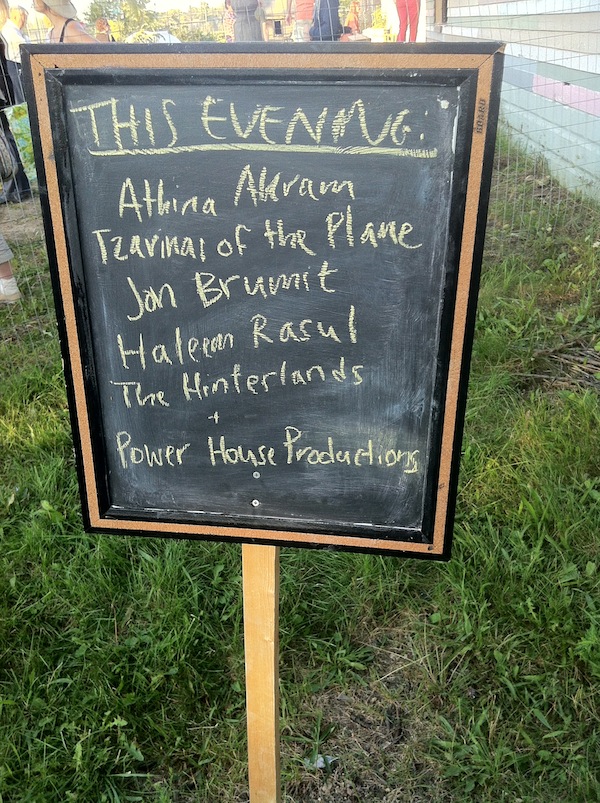 THIS EVENING:
Athina Akram
Tzarinas of the Plane
Jon Brumit
Haleem Rasul
The Hinterlands
+
Power House Productions
BOARD